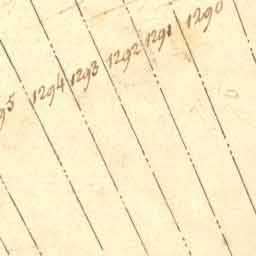 95 1294 1293 1292 1291 1290